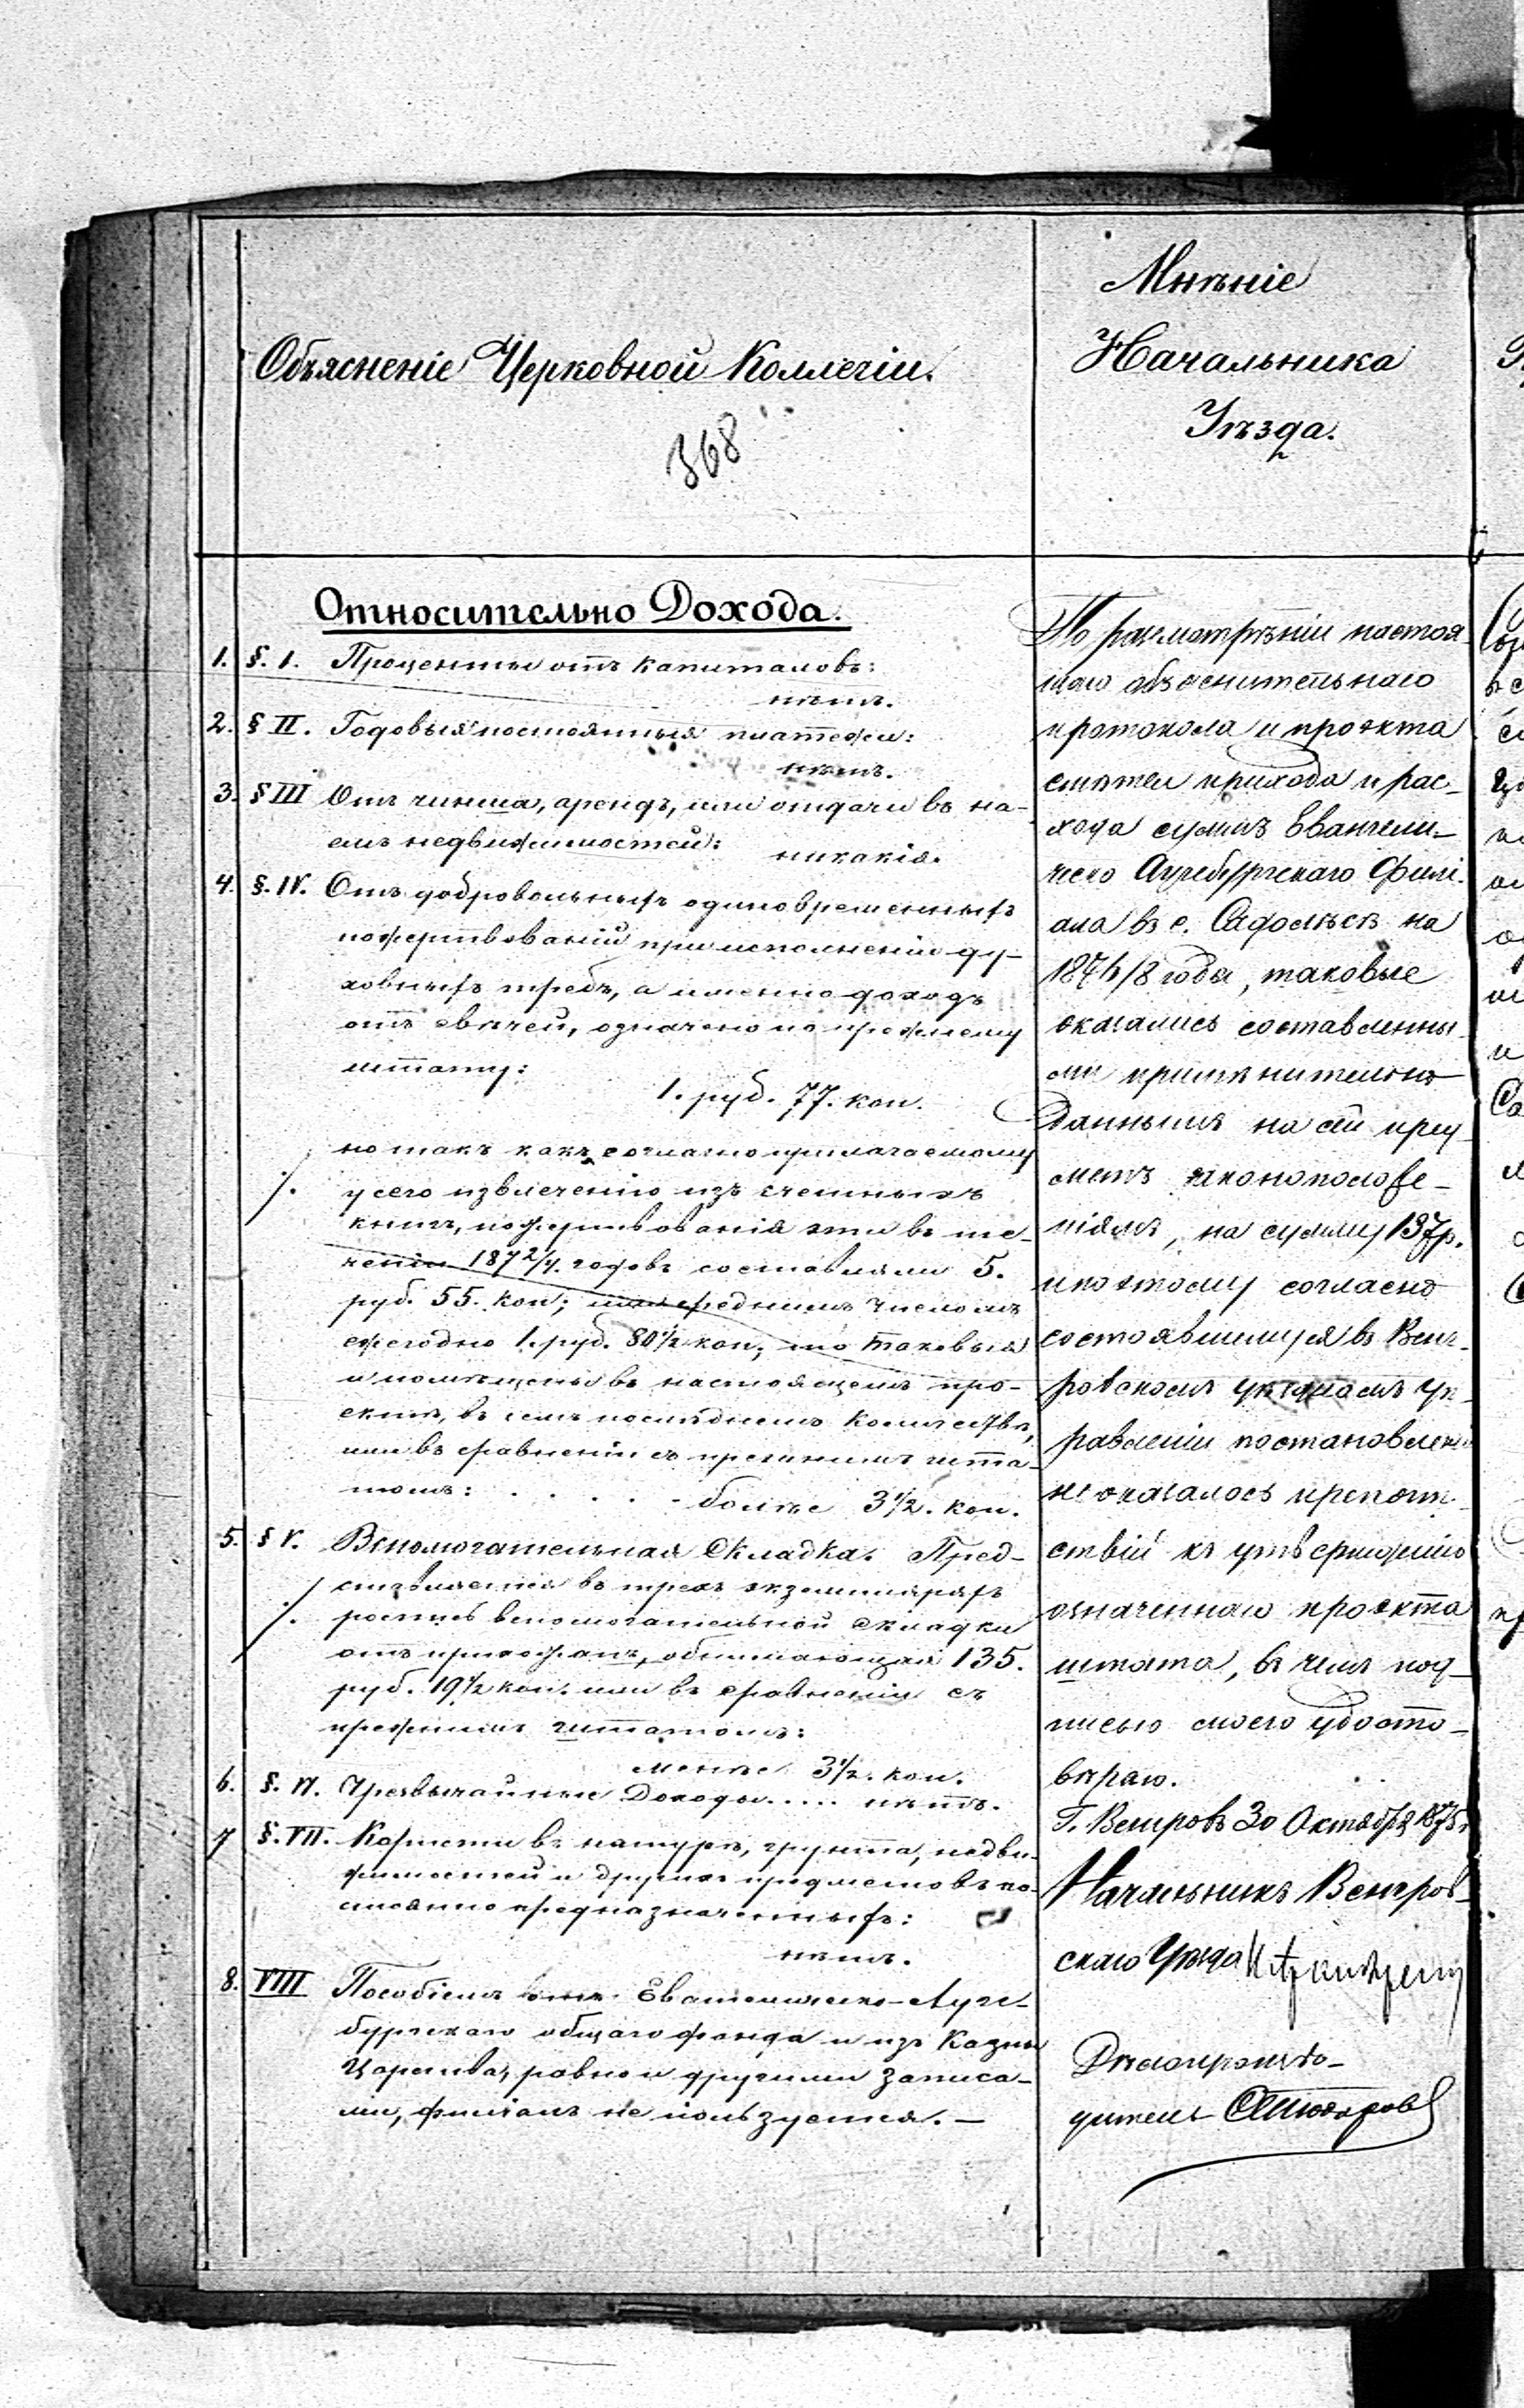 Объясненіе Церковной Коллегіи.
368
Мнѣніе
Начальника
Уѣзда.
Относительно Дохода.
1. §. I. Проценты отъ капиталовъ:
нѣтъ.
2. § II. Годовыя постоянныя платежи:
нѣтъ.
3. § III Отъ чинша, арендъ, или отдачи въ на-
емъ недвижимостей: никакія.
4. §. IV. Отъ добровольныхъ одиновременныхъ
пожертвованій при исполненіи ду-
ховныхъ требъ, а именно доходъ
отъ свѣчей, означено по прежнему
штату:
1. руб. 77. коп.
но такъ какъ согласно прилагаемому
у сего извлеченію изъ счетныхъ
книгъ, пожертвованія эти въ те-
ченіи 1872/4. годовъ составляли 5.
руб. 55. коп; или среднимъ числомъ
ежегодно 1. руб. 80½ коп; то таковыя
и помѣщены въ настоящемъ про-
ектѣ, въ семъ послѣднемъ количествѣ,
или въ сравненіи съ прежнимъ шта-
томъ: . . . . . болѣе 3½. коп.
5. § V. Вспомогательная Складка. Пред-
ставляется въ трехъ экземплярахъ
роспись вспомогательной складки
отъ прихожанъ, обнимающая 135.
руб. 19½ коп. или въ сравненіи съ
прежнимъ штатомъ:
менѣе 3½. коп.
6. §. VI. Чрезвычайные Доходы..... нѣтъ.
7 §. VII. Корысти въ натурѣ, грунта, недви-
жимостей и другихъ предметовъ по-
стоянно предназначенныхъ:
нѣтъ.
8. VIII Пособіемъ отъ Евангелическо-Аугс-
бургскаго общаго фонда и изъ Казны
Царства, равно и другими Записа-
ми, филіалъ не пользуется. —
По разсмотрѣніи настоя-
щаго объяснительнаго
протокола и проэкта
смѣты прихода и рас-
хода суммъ Евангели-
ческо Аугсбургскаго Филі-
ала въ с. Садольскъ на
187 /8 года, таковые
оказались составленны-
ми примѣнительно
даннымъ на сей пред-
метъ законоположе-
ніямъ, на сумму 137р.
и поэтому согласно
состоявшемуся въ Вен-
ровскомъ уѣздномъ Уп-
равленіи постановленію
не оказалось препят-
ствій къ утвержденію
означеннаго проэкта
штата, въ чемъ под-
писью моею удосто-
вѣряю.
Г. Венгровъ 30 Октября 1875.
Начальникъ Венгров-
скаго Уѣзда
Дѣлопроизво-
дитель